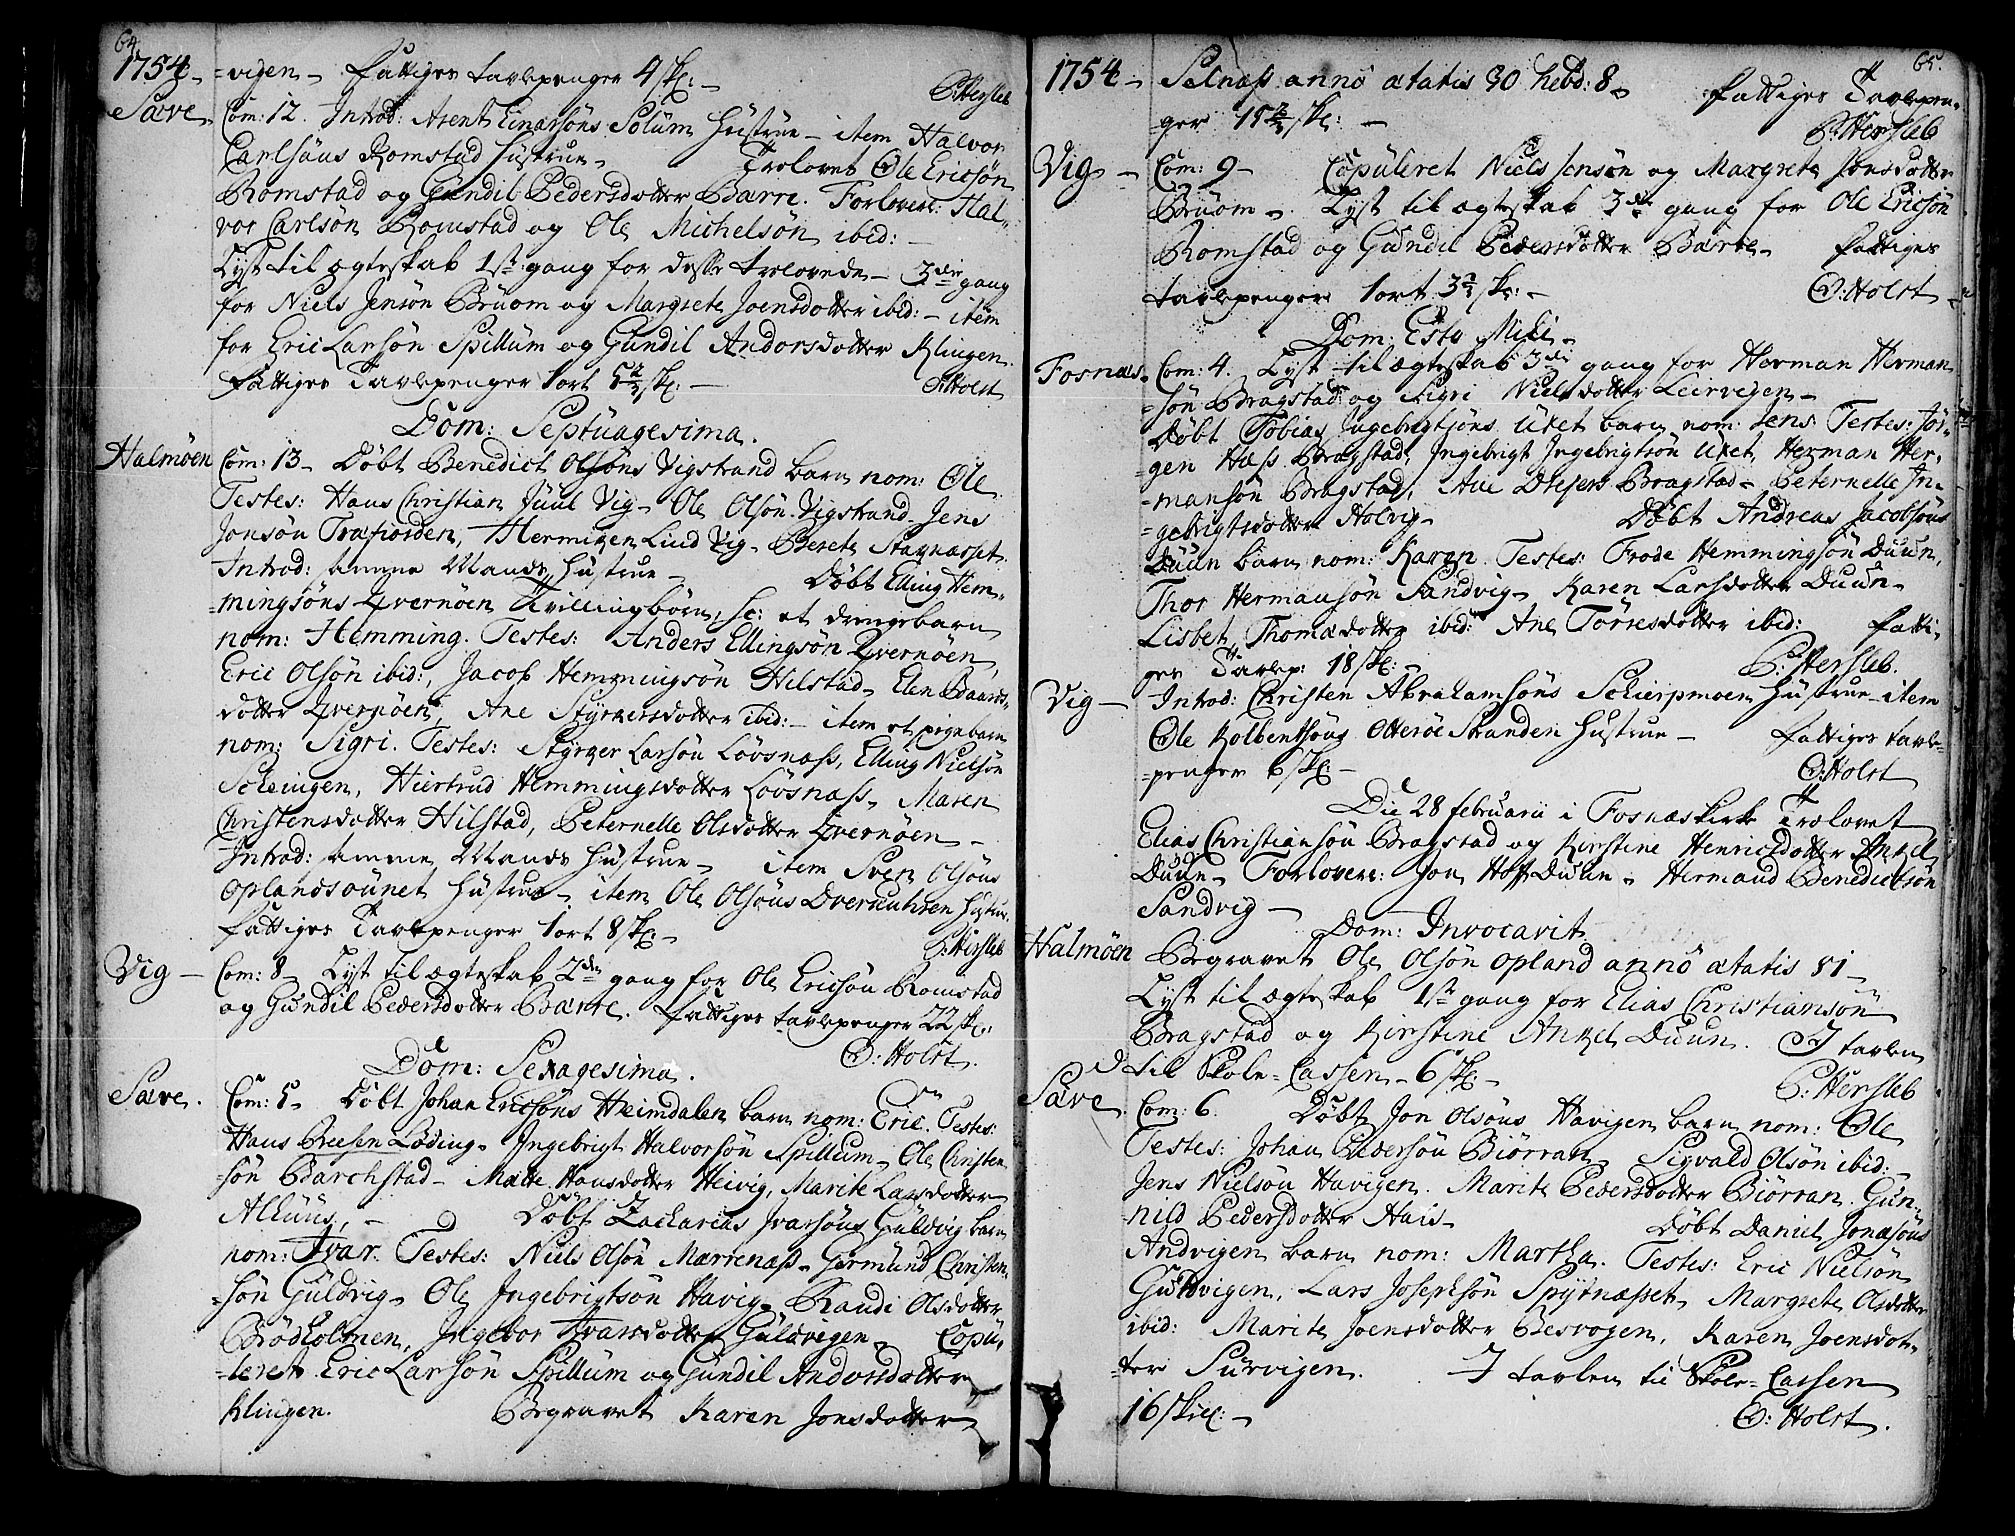 64.
1754.
=vigen. Fattiges tavlepenger 4 skl: -
P: Hersleb
Sævе.
Com: 12. Introd: Arent Einarsöns Solüm Hüstrue - item Halvor
Carlsöns Romstad Hüstrue. Trolovet Ole Ericsön
Romstad og Gündil Pedersdotter Barre. Forlovere: Hal-
vor Carlsön Romstad og Ole Michelsön ibid: -
Lyst til ægteskab 1ste gang for disse trolovede - 3die gang
for Niels Jensön Brüom og Margrete Joensdotter ibid: - item
for Eric Larsön Spillüm og Gündil Andorsdotter Klingen.
Fattiges Tavlepenger 1 ort 5 skl: -
O: Holst
Dom: Septüagesima.
Halmöen
Com: 13 - Döbt Benedict Olsöns Vigstrand barn nom: Ole
Testes: Hans Christian Jüül Vig - Ole Olsön Vigstrand - Jens
Jonsön Trafiorden, Hermigen Lind Vig - Berete Stavnasset.
Introd: samme Mands Hüstrue - Döbt Elling Hem-
=mingsöns Qvernöen Tvillingbörn, sc: et drengebarn
nom: Hemming. Testes: Anders Ellingsön Qvernöen,
Eric Olsön ibid:, Jacob Hemmingsön Hilstad - Elen Baards-
dotter Qvernöen, Ane Styrkersdotter ibid: - item et pigebarn
nom: Sigri. Testes: Styrcer Larsön Lövsnass, Elling Nielsön
Scheingen, Hiertrud Hemmingsdotter Lövsnass, Maren
Christensdotter Hilstad, Peternelle Olsdotter Qvernöen -
Introd: samme Mands Hüstrue - item Sven Olsöns
Oplandsöünet Hüstrue - item Ole Olsöns Hüstrue.
Fattiges Tavlepenger 1 ort 8 skl: -
P: Hersleb
Vig -
Com: 8 - Lyst til ægteskab 2den gang for Ole Ericsön Romstad
og Gündil Pedersdotter Barre. Fattiges tavlepenger 22 skl:
O: Holst.
Dom: Sexagesima.
Sæve.
Com: 5 - Döbt Johan Ericsöns Heimdalen barn nom: Eric. Testes:
Hans Breesen Löding - Ingebrigt Halvorsön Spillüm - Ole Christen-
sön Barchstad - Mætte Hansdotter Heivig, Marite Larsdotter
Alhüüs, - Döbt Zacharias Ivarsöns Güldvig barn
nom: Ivar. Testes: Niels Olsön Marrenass - Germünd Christen-
=sön Güldvig - Ole Ingebrigtsön Havig - Randi Olsdotter
Brödholmen, Ingebor Ivarsdotter Güldvigen - Copü-
=leret Eric Larsön Spillüm og Gündil Andorsdotter
Klingen. Begravet Karen Jonsdotter
65.
1754 -
Selnass anno ætatis 30 hebd: 8 - Fattiges Tavlepen-
=ger 15 skl: -
P: Hersleb
Vig -
Com: 9 - Copüleret Niels Jensön og Margrete Jonsdotter
Brüom - Lyst til ægteskab 3die gang for Ole Ericsön
Romstad og Gündil Pedersdotter Barre - Fattiges
tavlepenger 1 ort 3 skl: -
O: Holst -
Dom: Esto Mihi -
Fosnæs.
Com: 4. Lyst til ægteskab 3die gang for Herman Herman-
=sön Bragstad og Sigri Nielsdotter Leirvigen -
Döbt Tobias Ingebrigtsöns Utet barn nom: Jens. Testes: Jör-
=gen Hass Bragstad, Ingebrigt Ingebrigtsön Utet, Herman Her-
=mansön Bragstad, Ane Bragstad - Peternelle In-
=gebrigtsdotter Holvig - Döbt Andreas Jacobsöns
Düün barn nom: Karen. Testes: Frode Hemmingsön Düün,
Thor Hermansön Sandvig - Karen Larsdotter Düün -
Lisbet Thomædotter ibid: Ane Törresdotter ibid: Fatti-
ges Tavlep: 18 skl: -
P: Hersleb.
Vig -
Introd: Christen Abrahamsöns Schierpmoen Hüstrue - item
Ole Kolbentsöns Otteröe Stranden Hüstrue - Fattiges tavle-
=penger 6 skl: -
O: Holst
Die 28 februarii i Fosnæs kirke Trolovet
Elias Christiansön Bragstad og Kirstine Henricsdotter Ankel
Düün - Forlovere: Jon Hoff Düün - Hermand Benedictsön
Sandvig -
Dom: Invocavit
Halmöen
Begravet Ole Olsön Opland anno ætatis 81 -
Lyst til ægteskab 1ste gang for Elias Christiansön
Bragstad og Kirstine Ankel Düün. I tavlen
til Skole-Cassen - 6 skl: -
P: Hersleb
Sæve
Com: 6. Döbt Jon Olsöns Havigen barn nom: Ole
Testes: Johan Pedersön Biörran - Sigvald Olsön ibid: -
Jens Nielsön Havigen. Marite Pedersdotter Biörran. Gün-
=nild Pedersdotter Hals - Döbt Daniel Jonæsöns
Andvigen barn nom: Martha. Testes: Eric Nielsön
Güldvigen, Lars Josephsön Spytnasset, Margrete Olsdotter
ibid: Marite Joensdotter Besvogen, Karen Joensdot-
=ter Sürvigen. I tavlen til Skole-Cassen
16 skill: -
O: Holst.